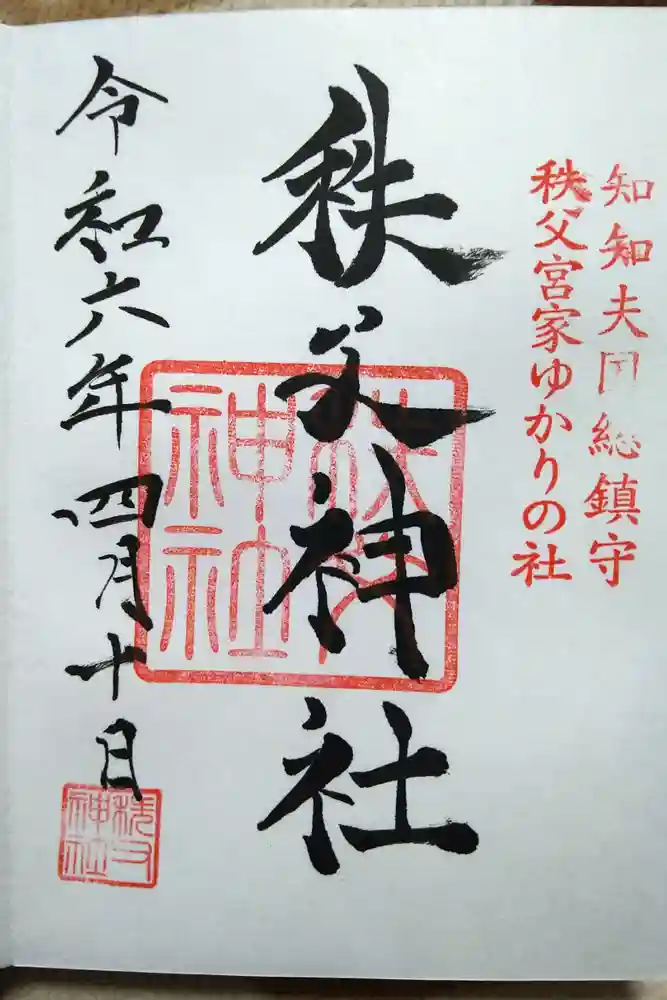 知知夫国総鎮守
秩父宮家ゆかりの社
秩父神社
秩父神社
令和六年四月十日
秩父神社